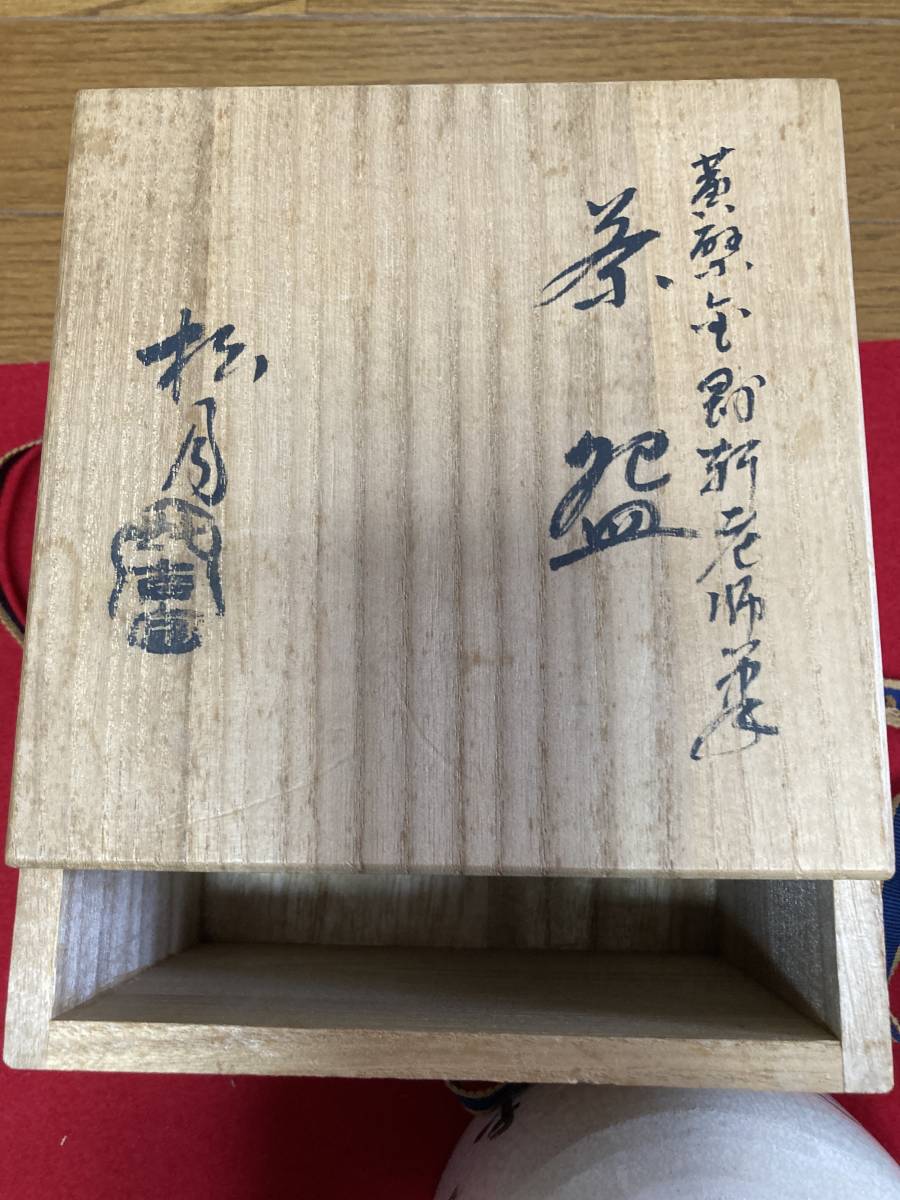 黄檗金剛軒老師筆
茶盌
松月